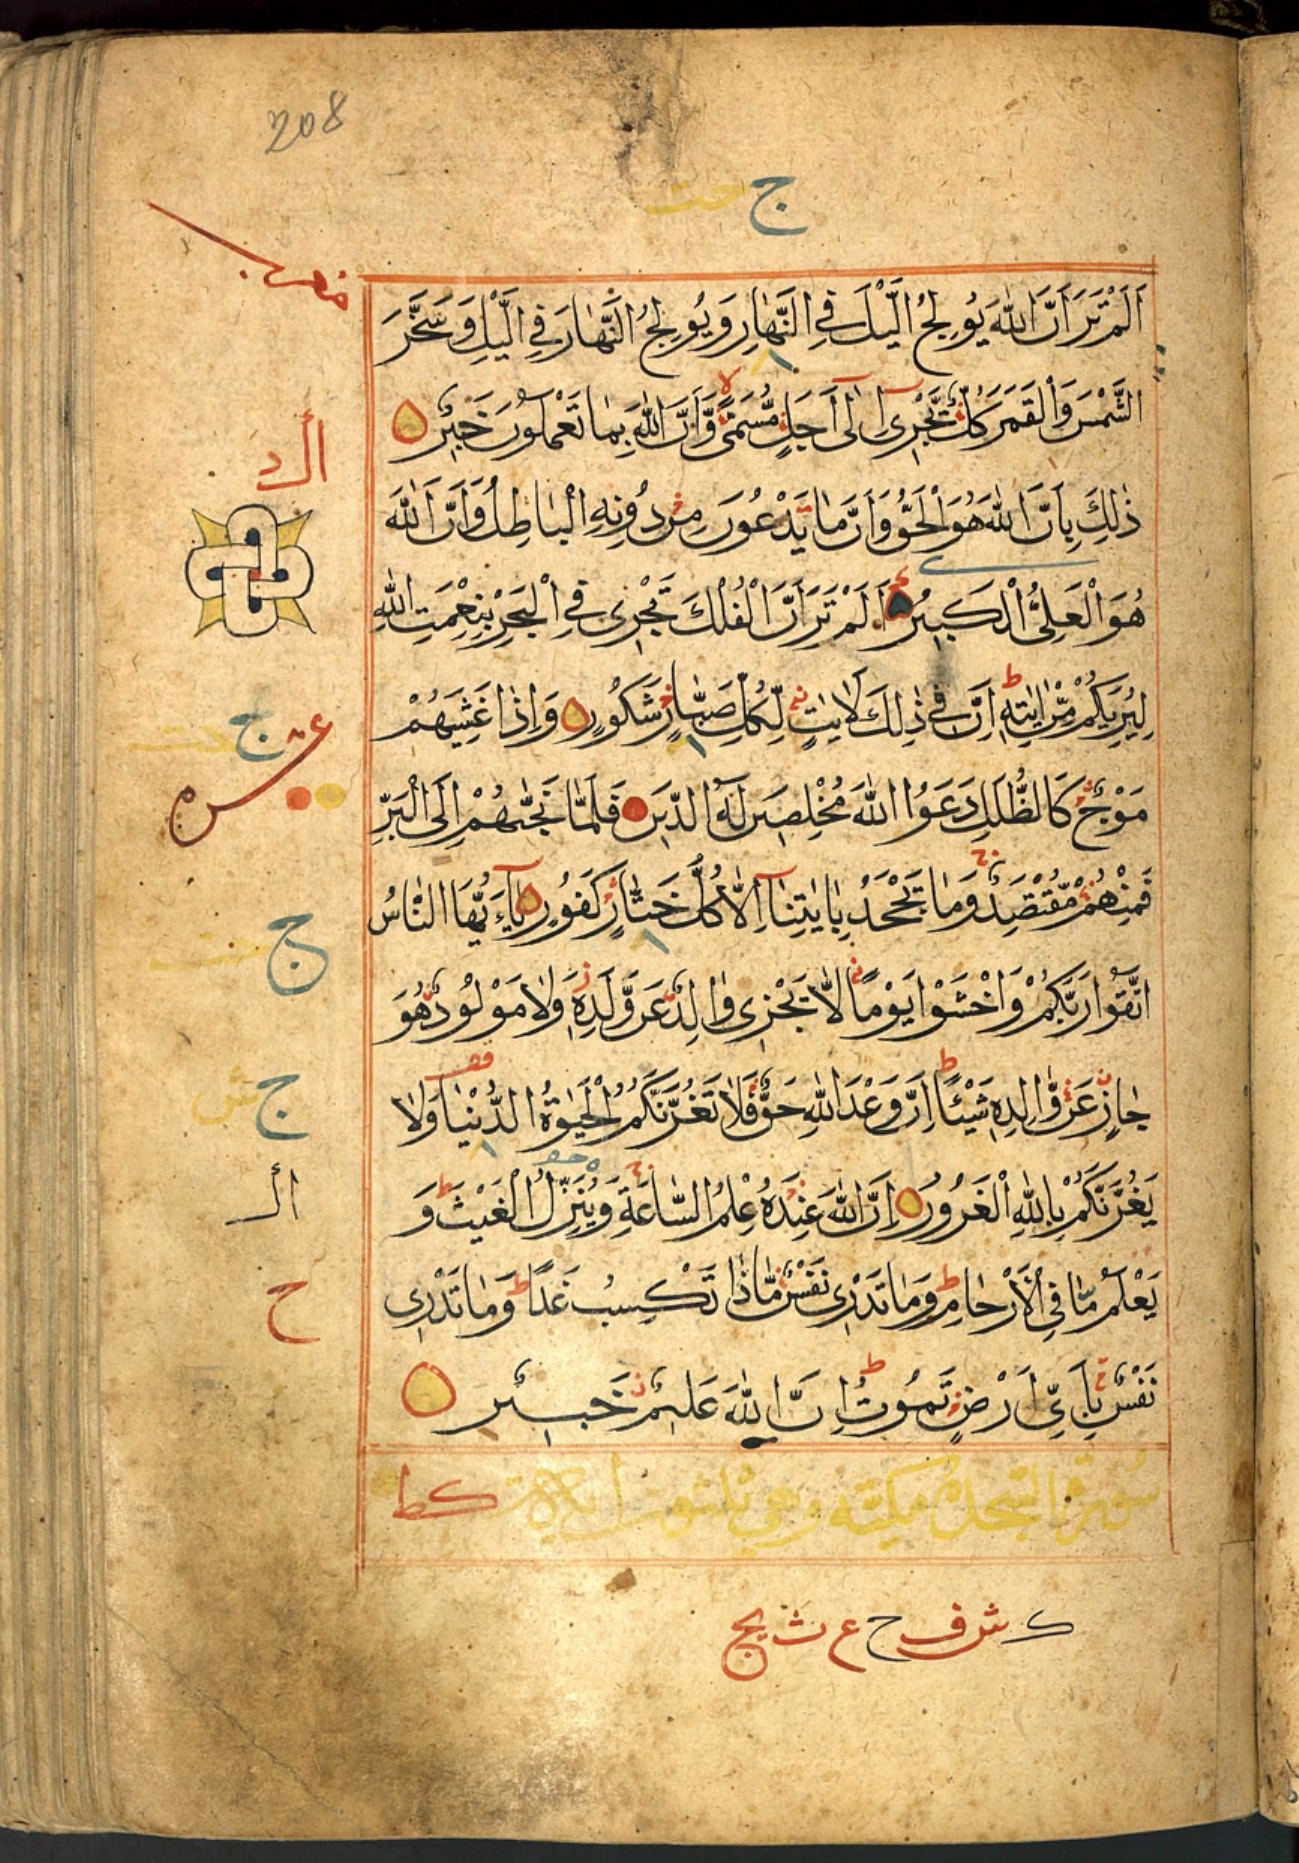 208
ج حت
اَلَمْ تَرَ اَنَّ اللّٰهَ يُولِجُ الَّيْلَ فِي النَّهَارِ وَيُولِجُ النَّهَارَ فِي الَّيْلِ وَسَخَّرَ
الشَّمْسَ وَالْقَمَرَ كُلٌّ يَّجْرِيْ اِلٰى اَجَلٍ مُّسَمًّى وَّاَنَّ اللّٰهَ بِمَا تَعْمَلُونَ خَبِيْرٌ
ذٰلِكَ بِاَنَّ اللّٰهَ هُوَ الْحَقُّ وَاَنَّ مَا يَدْعُونَ مِنْ دُونِهِ الْبَاطِلُ وَاَنَّ اللّٰهَ
هُوَ الْعَلِيُّ الْكَبِيْرُ اَلَمْ تَرَ اَنَّ الْفُلْكَ تَجْرِيْ فِي الْبَحْرِ بِنِعْمَتِ اللّٰهِ
لِيُرِيَكُمْ مِّنْ اٰيٰتِهٖ اِنَّ فِيْ ذٰلِكَ لَاٰيٰتٍ لِّكُلِّ صَبَّارٍ شَكُورٍ وَاِذَا غَشِيَهُمْ
مَوْجٌ كَالظُّلَلِ دَعَوُا اللّٰهَ مُخْلِصِيْنَ لَهُ الدِّيْنَ فَلَمَّا نَجّٰهُمْ اِلَى الْبَرِّ
فَمِنْهُمْ مُّقْتَصِدٌ وَمَا يَجْحَدُ بِاٰيٰتِنَا اِلَّا كُلُّ خَتَّارٍ كَفُورٍ يٰاَيُّهَا النَّاسُ
اتَّقُوا رَبَّكُمْ وَاخْشَوْا يَوْمًا لَّا يَجْزِيْ وَالِدٌ عَنْ وَّلَدِهٖ وَلَا مَوْلُودٌ هُوَ
جَازٍ عَنْ وَّالِدِهٖ شَيْئًا اِنَّ وَعْدَ اللّٰهِ حَقٌّ فَلَا تَغُرَّنَّكُمُ الْحَيٰوةُ الدُّنْيَا وَلَا
يَغُرَّنَّكُمْ بِاللّٰهِ الْغَرُورُ اِنَّ اللّٰهَ عِنْدَهٗ عِلْمُ السَّاعَةِ وَيُنَزِّلُ الْغَيْثَ وَ
يَعْلَمُ مَا فِي الْاَرْحَامِ وَمَا تَدْرِيْ نَفْسٌ مَّاذَا تَكْسِبُ غَدًا وَمَا تَدْرِيْ
نَفْسٌ بِاَيِّ اَرْضٍ تَمُوتُ اِنَّ اللّٰهَ عَلِيْمٌ خَبِيْرٌ
سورة السجدة مكية وهي ثلثون اية
ك ش ف ح ع ث يج
ج حت
ج حت
ج ش
ح